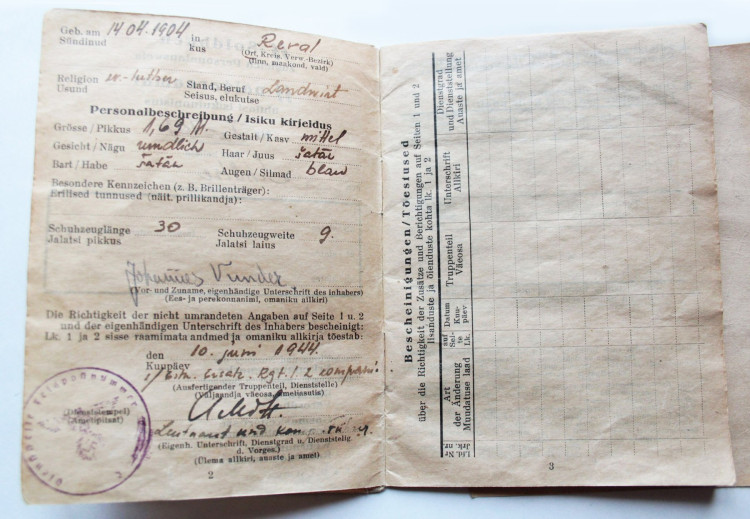 Geb. am 14.04.1904 in Reval
Sündinud kus (Ort, Kreis, Verw.-Bezirk)
(linn, maakond, vald)
Religion ev.-luther Stand, Beruf Landwirt
Usund Seisus, elukutse
Personalbeschreibung / Isiku kirjeldus
Grösse / Pikkus 1,69 M. Gestalt / Kasv mittel
Gesicht / Nägu rundlich Haar / Juus šatän
Bart / Habe šatän Augen / Silmad blau
Besondere Kennzeichen (z. B. Brillenträger):
Erilised tunnused (näit. prillikandja):
Schuhzeuglänge 30 Schuhzeugweite 9.
Jalatsi pikkus Jalatsi laius
Johannes
(Vor- und Zuname, eigenhändige Unterschrift des Inhabers)
(Ees- ja perekonnanimi, omaniku allkiri)
Die Richtigkeit der nicht umrandeten Angaben auf Seite 1 u. 2
und der eigenhändigen Unterschrift des Inhabers bescheinigt:
Lk. 1 ja 2 sisse raamimata andmed ja omaniku allkirja tõestab:
den 10. juni 1944.
Kuupäev
Estn. Ersatz. Rgt. / 2
(Ausfertigender Truppenteil, Dienststelle)
(Väljaandja väeosa, ametiasutis)
(Dienststempel)
(Ametipitsat)
Leutnant und
(Eigenh. Unterschrift, Dienstgrad u. Dienststellg
d. Vorges.)
(Ülema allkiri, auaste ja amet)
2
Bescheinigungen / Tõestused
über die Richtigkeit der Zusätze und Berichtigungen auf Seiten 1 und 2
lisanduste ja õienduste kohta lk. 1 ja 2
Lfd. Nr
Jrk. nr.
Art
der Änderung
Muudatuse laad
auf
Sei-
te
Lk.
Datum
Kuu-
päev
Truppenteil
Väeosa
Unterschrift
Allkiri
Dienstgrad
und Dienststellung
Auaste ja amet
3